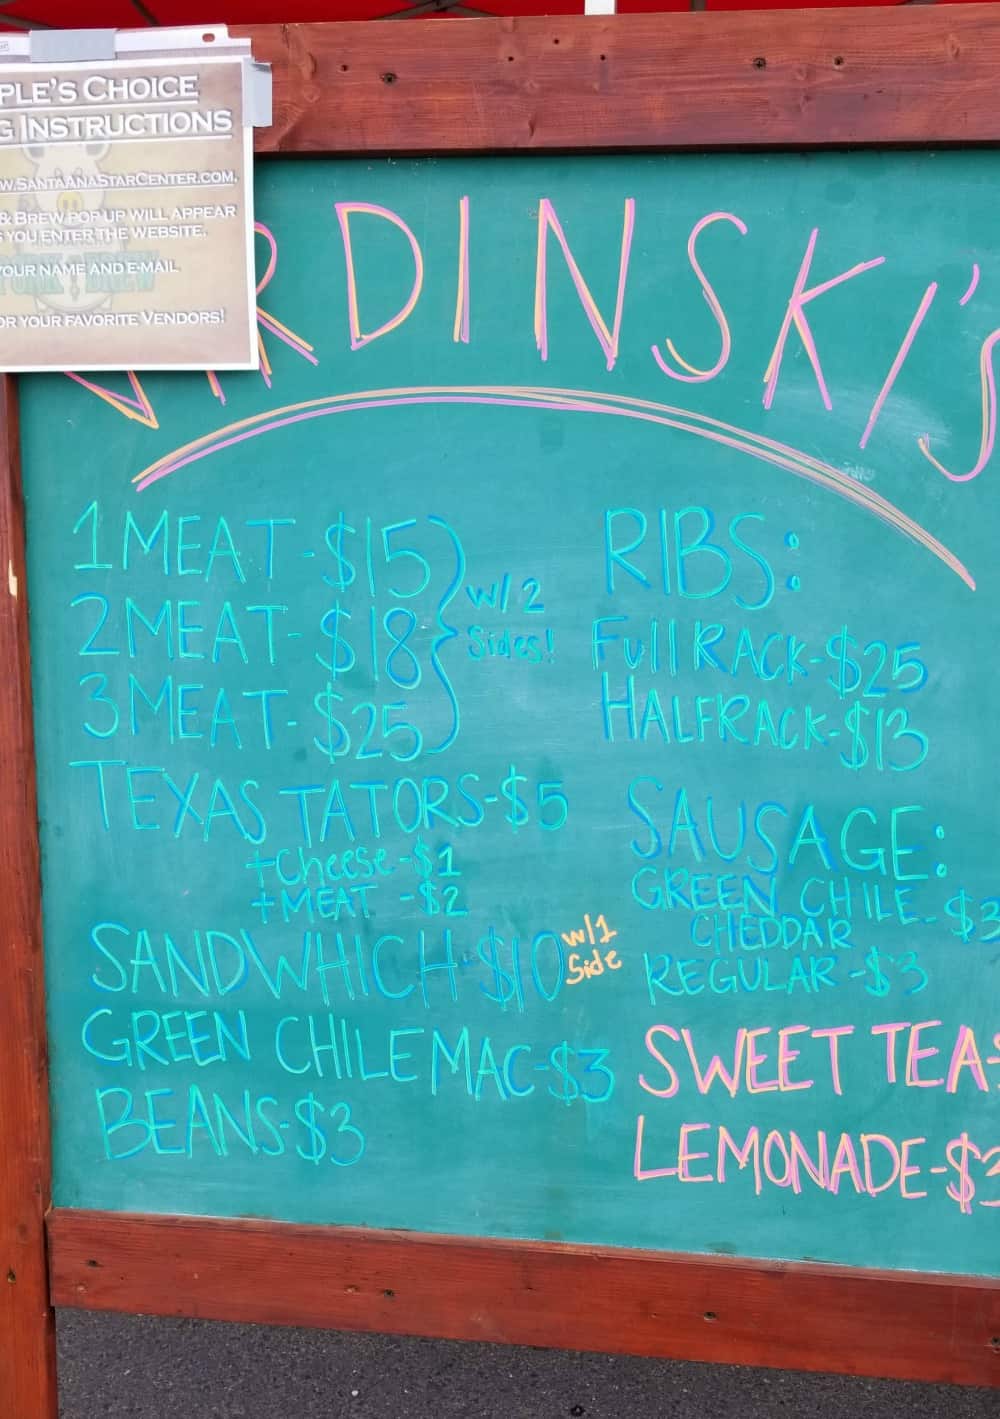 PLE'S CHOICE
G INSTRUCTIONS
W.SANTAANASTARCENTER.COM.
& BREW POP UP WILL APPEAR
S YOU ENTER THE WEBSITE.
YOUR NAME AND E-MAIL
OR YOUR FAVORITE VENDORS!
RDINSKI'S
1 MEAT-$15
2 MEAT-$18
3 MEAT-$25
w/2
Sides!
TEXAS TATORS-$5
+Cheese-$1
+MEAT -$2
SANDWHICH-$10
w/1
Side
GREEN CHILE MAC-$3
BEANS-$3
RIBS:
Full RACK-$25
HALF RACK-$13
SAUSAGE:
GREEN CHILE
CHEDDAR -$3
REGULAR-$3
SWEET TEA-
LEMONADE-$3